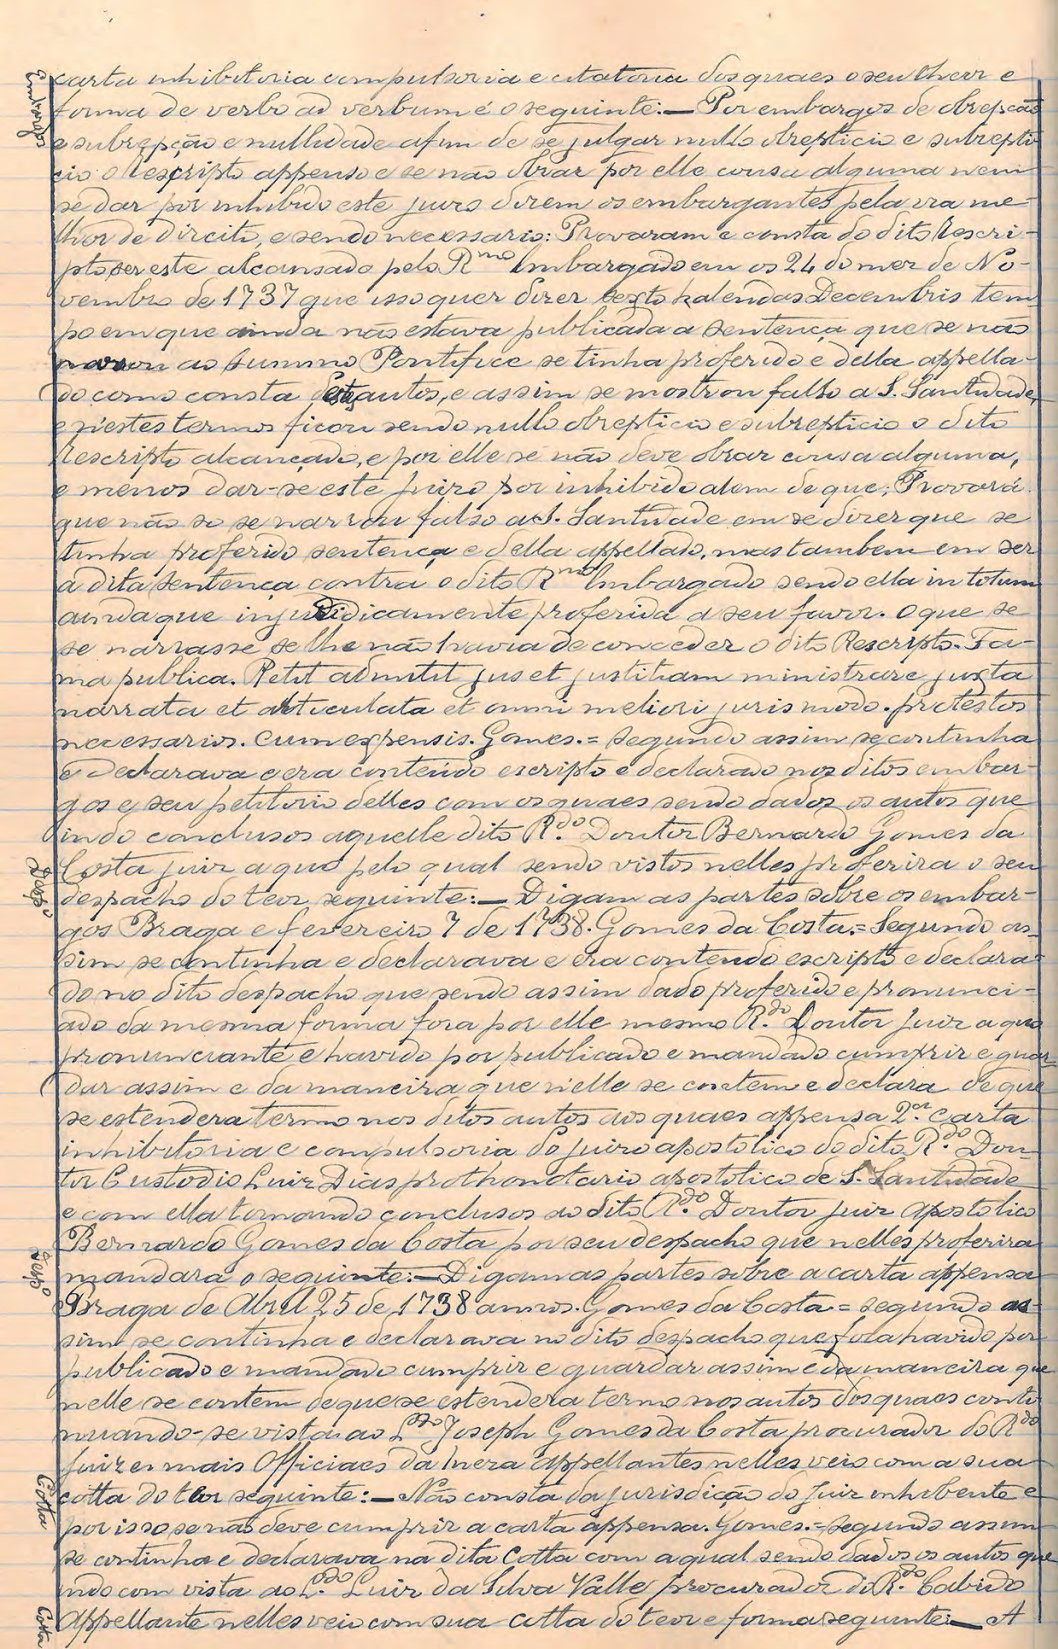 Embargos
carta inhibitoria compulsoria e citatoria dos quaes o seu theor e
forma de verbo ad verbum é o seguinte:— Por embargos de obrepcão
e subrepção e nullidade afim de se julgar nullo obrepticio e subrepti
cio o Rescripto appenso e se não obrar por elle cousa alguma nem
se dar por inhibido este juizo dizem os embargantes pela via me-
lhor de direito, e sendo necessario: Provaram e consta do dito Rescri-
pto ser este alcansado pelo Rmo Embargado em os 24 do mez de No-
vembro de 1737 que isso quer dizer Sexto kalendas Decembris tem
po em que ainda não estava publicada a sentença que se não
ao Summo Pontifice se tinha proferido e della appella-
do como consta destes autos, e assim se mostrou falso a S. Santidade,
e n'estes termos ficou sendo nullo obrepticio e subrepticio o dito
Rescripto alcançado, e por elle se não deve obrar cousa alguma,
e menos dar-se este juizo por inhibido alem de que; Provará
que não so se narrou falso a S. Santidade em se dizer que se
tinha proferido sentença e della appellado, mas tambem em ser
a dita sentença contra o dito Rmo Embargado sendo ella in totum
ainda que injuridicamente proferida a seu favor. O que se
se narrasse se lhe não havia de conceder o dito Rescripto. Fa-
ma publica. Petit admitit jus et justitiam ministrare juxta
narrata et articulata et omni meliori juris modo. protestos
necessarios. Cum expensis. Gomes. = Segundo assim se continha
e declarava e era conteudo escripto e declarado nos ditos embar-
gos e seu petitorio delles com os quaes sendo dados os autos que
indo conclusos aquelle dito R.do Doutor Bernardo Gomes da
Costa juiz a quo pelo qual sendo vistos nelles proferira o seu
Despo
despacho do teor seguinte:— Digam as partes sobre os embar-
gos Braga e fevereiro 7 de 1738. Gomes da Costa. = Segundo as-
sim se continha e declarava e era conteudo escripto e declara-
do no dito despacho que sendo assim dado proferido e pronunci-
ado da mesma forma fora por elle mesmo R.do Doutor Juiz a quo
pronunciante e havido por publicado e mandado cumprir e guar
dar assim e da maneira que n'elle se contem e declara de que
se estendera termo nos ditos autos aos quaes appensa 2.a Carta
inhibitoria e compulsoria do juizo apostolico do dito R.do Dou-
tor Custodio Luiz Dias prothonotario apostolico de S. Santidade
e com ella tornando conclusos ao dito R.do Doutor juiz apostolico
Bernardo Gomes da Costa por seu despacho que nelles proferira
Despo
mandara o seguinte:— Digam as partes sobre a carta appensa
Braga de Abril 25 de 1738 annos. Gomes da Costa = segundo as-
sim se continha e declarava no dito despacho que fora havido por
publicado e mandado cumprir e guardar assim e da maneira que
nelle se contem de que se estendera termo nos autos dos quaes conti
nuando-se vista ao L.do Joseph Gomes da Costa procurador do R.do
Juiz e mais Officiaes da Meza appellantes nelles veio com a sua
Cotta
cotta do teor seguinte:— Não consta da jurisdição do Juiz inhibente e
por isso se não deve cumprir a carta appensa. Gomes. = segundo assim
se continha e declarava na dita Cotta com a qual sendo dados os autos que
indo com vista ao L.do Luiz da Silva Valle procurador do R.do Cabido
Cotta
Appellante nelles veio com sua cotta do teor e forma seguinte:— A